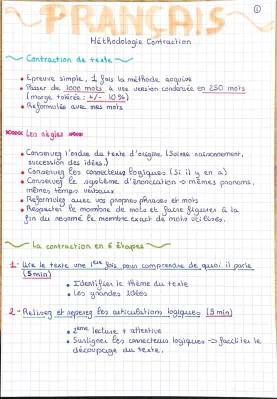 FRANÇAIS
1
Méthodologie Contraction
Contraction de texte
• Epreuve simple, 1 fois la méthode acquise
• Passer de 1000 mots à une version condensée en 250 mots
(marge tolérée : +/- 10%)
• Reformulée avec mes mots
Les règles
• Conserver l'ordre du texte d'origine (Suivre raisonnement,
succession des idées.)
• Conserver les connecteurs logiques (Si il y en a)
• Conserver le système d'énonciation -> mêmes pronoms,
mêmes temps verbaux
• Reformuler avec vos propres phrases et mots
• Respecter le nombre de mots et faire figurer à la
fin du résumé le nombre exact de mots utilisés.
La contraction en 6 étapes
1- Lire le texte une 1ère fois pour comprendre de quoi il parle
(5 min)
• Identifier le thème du texte
• Les grandes idées
2- Relisez et repérez les articulations logiques (5 min)
• 2ème lecture + attentive
• Surligner les connecteurs logiques -> faciliter le
découpage du texte.